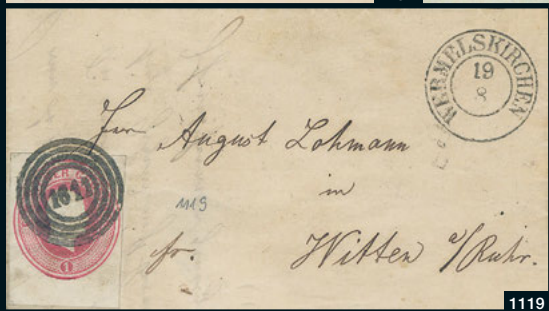 WERMELSKIRCHEN
19
8
Herrn August Lohmann
in
1119
fr. Witten a/Ruhr.
1
1119